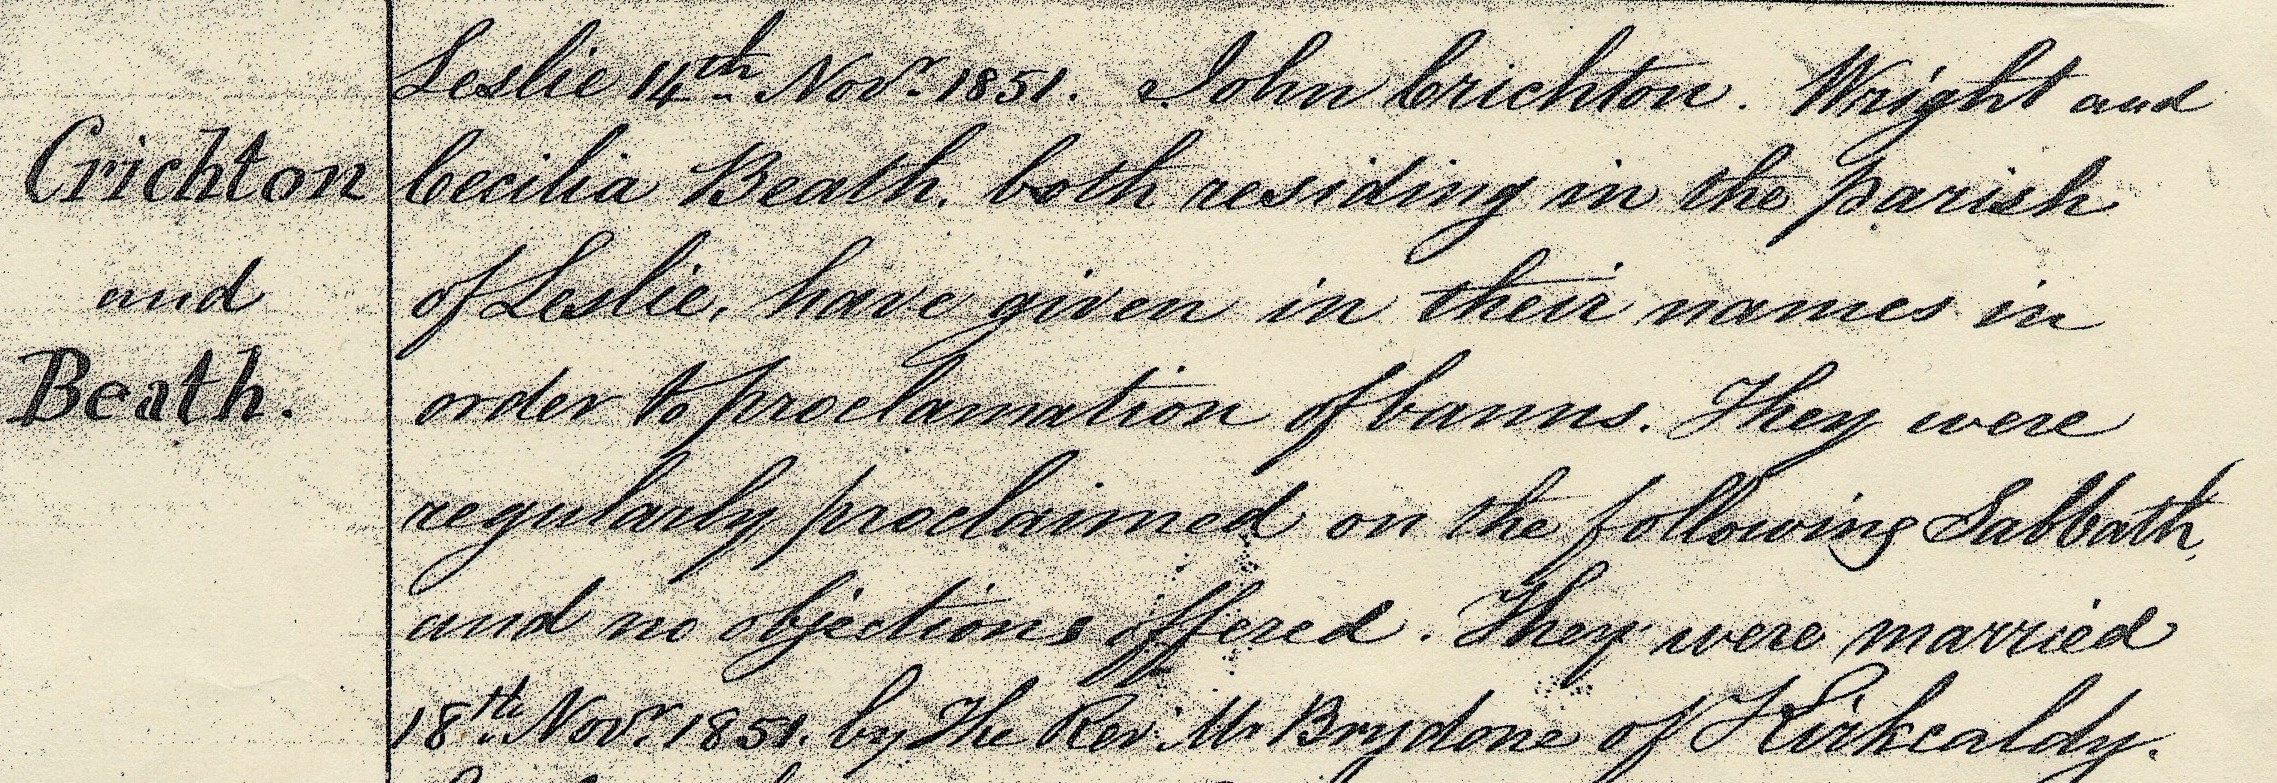 Leslie 14th Novr. 1851. John Crichton. Wright and
Crichton
Cecilia Beath, both residing in the parish
and
of Leslie, have given in their names in
Beath.
order to proclamation of banns. They were
regularly proclaimed on the following Sabbath,
and no objections offered. They were married
18th Novr. 1851. by The Rev. Mr Brydone of Kirkcaldy.